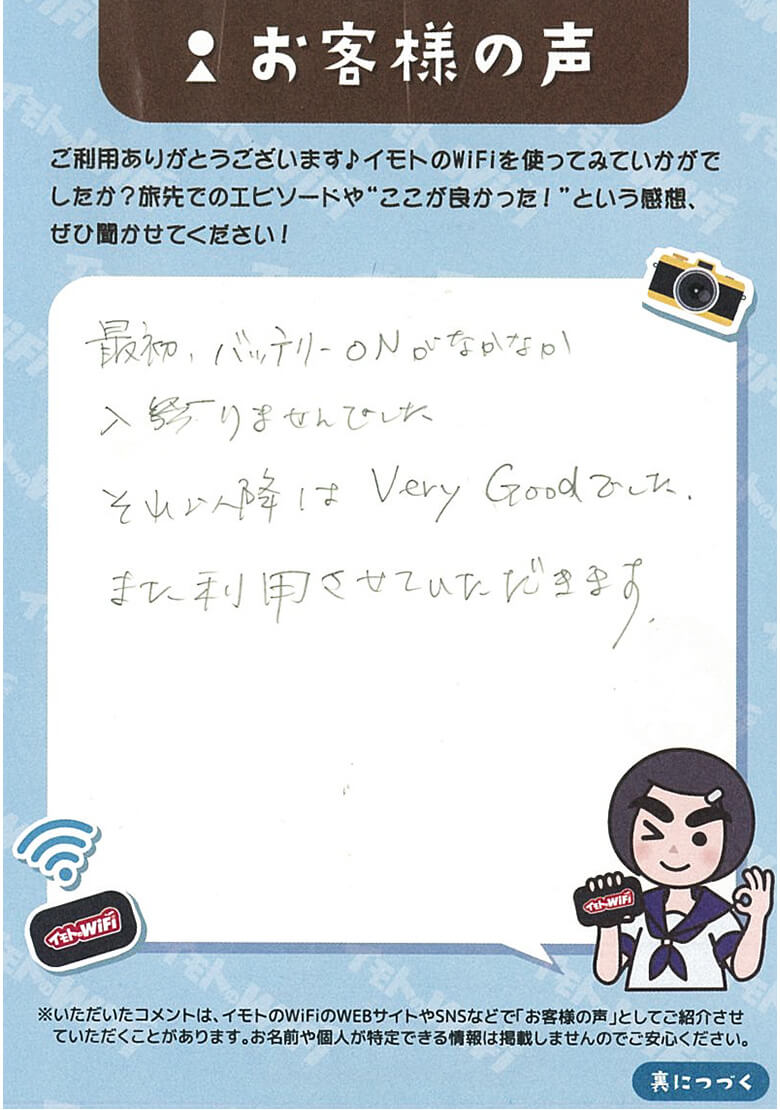 お客様の声
ご利用ありがとうございます♪イモトのWiFiを使ってみていかがで
したか？旅先でのエピソードや“ここが良かった！”という感想、
ぜひ聞かせてください！
最初、バッテリーONがなかなか
入りませんでした
それ以降は Very Goodでした.
また利用させていただきます.
イモトのWiFi
イモトのWiFi
※いただいたコメントは、イモトのWiFiのWEBサイトやSNSなどで「お客様の声」としてご紹介させ
ていただくことがあります。お名前や個人が特定できる情報は掲載しませんのでご安心ください。
裏につづく